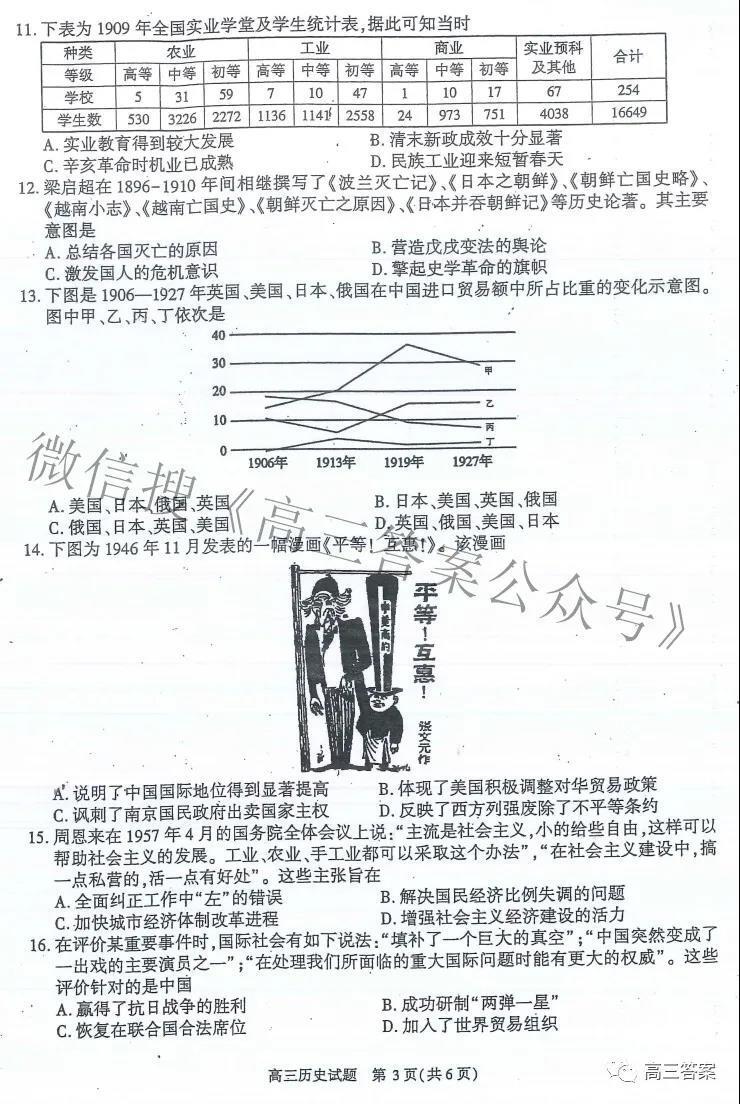 11. 下表为 1909 年全国实业学堂及学生统计表,据此可知当时
种类 农业 工业 商业 实业预科及其他 合计
等级 高等 中等 初等 高等 中等 初等 高等 中等 初等
学校 5 31 59 7 10 47 1 10 17 67 254
学生数 530 3226 2272 1136 1141 2558 24 973 751 4038 16649
A. 实业教育得到较大发展 B. 清末新政成效十分显著
C. 辛亥革命时机业已成熟 D. 民族工业迎来短暂春天
12. 梁启超在 1896-1910 年间相继撰写了《波兰灭亡记》、《日本之朝鲜》、《朝鲜亡国史略》、
《越南小志》、《越南亡国史》、《朝鲜灭亡之原因》、《日本并吞朝鲜记》等历史论著。其主要
意图是
A. 总结各国灭亡的原因 B. 营造戊戌变法的舆论
C. 激发国人的危机意识 D. 擎起史学革命的旗帜
13. 下图是 1906—1927 年英国、美国、日本、俄国在中国进口贸易额中所占比重的变化示意图。
图中甲、乙、丙、丁依次是
40
30
甲
20
乙
10
丙
丁
0
1906年 1913年 1919年 1927年
A. 美国、日本、俄国、英国 B. 日本、美国、英国、俄国
C. 俄国、日本、英国、美国 D. 英国、俄国、美国、日本
14. 下图为 1946 年 11 月发表的一幅漫画《平等！互惠！》。该漫画
平等！互惠！
中美商约
张文元作
A. 说明了中国国际地位得到显著提高 B. 体现了美国积极调整对华贸易政策
C. 讽刺了南京国民政府出卖国家主权 D. 反映了西方列强废除了不平等条约
15. 周恩来在 1957 年 4 月的国务院全体会议上说:“主流是社会主义,小的给些自由,这样可以
帮助社会主义的发展。工业、农业、手工业都可以采取这个办法”,“在社会主义建设中,搞
一点私营的,活一点有好处”。这些主张旨在
A. 全面纠正工作中“左”的错误 B. 解决国民经济比例失调的问题
C. 加快城市经济体制改革进程 D. 增强社会主义经济建设的活力
16. 在评价某重要事件时,国际社会有如下说法:“填补了一个巨大的真空”;“中国突然变成了
一出戏的主要演员之一”;“在处理我们所面临的重大国际问题时能有更大的权威”。这些
评价针对的是中国
A. 赢得了抗日战争的胜利 B. 成功研制“两弹一星”
C. 恢复在联合国合法席位 D. 加入了世界贸易组织
高三历史试题 第 3 页(共 6 页)
微信搜《高三答案公众号》
高三答案